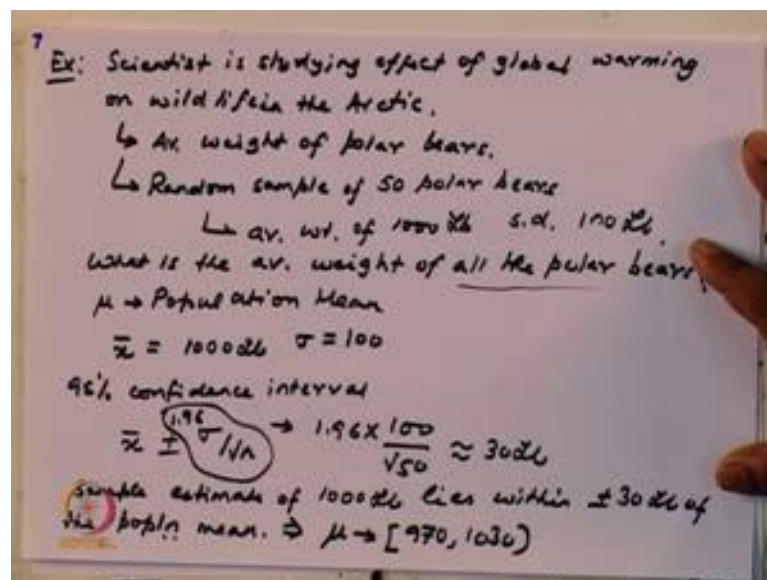 7
Ex: Scientist is studying effect of global warming
on wild life in the Arctic.
↳ Av. weight of polar bears.
↳ Random sample of 50 polar bears
↳ av. wt. of 1000 lb s.d. 100 lb.
What is the av. weight of all the polar bears.
μ → Population Mean
x̄ = 1000 lb σ = 100
95% confidence interval
x̄ ± 1.96 σ/√n → 1.96 × 100/√50 ≈ 30 lb
sample estimate of 1000 lb lies within ± 30 lb of
the popln. mean. ⇒ μ → [970, 1030)